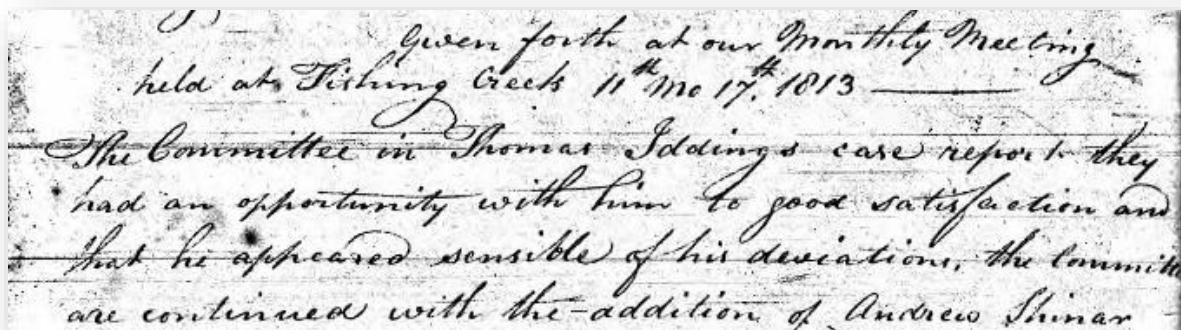 Given forth at our Monthly Meeting
held at Fishing Creek 11th Mo 17th. 1813
The Committee in Thomas Iddings case report they
had an opportunity with him to good satisfaction and
that he appeared sensible of his deviations, the Committe
are continued with the addition of Andrew Shinar